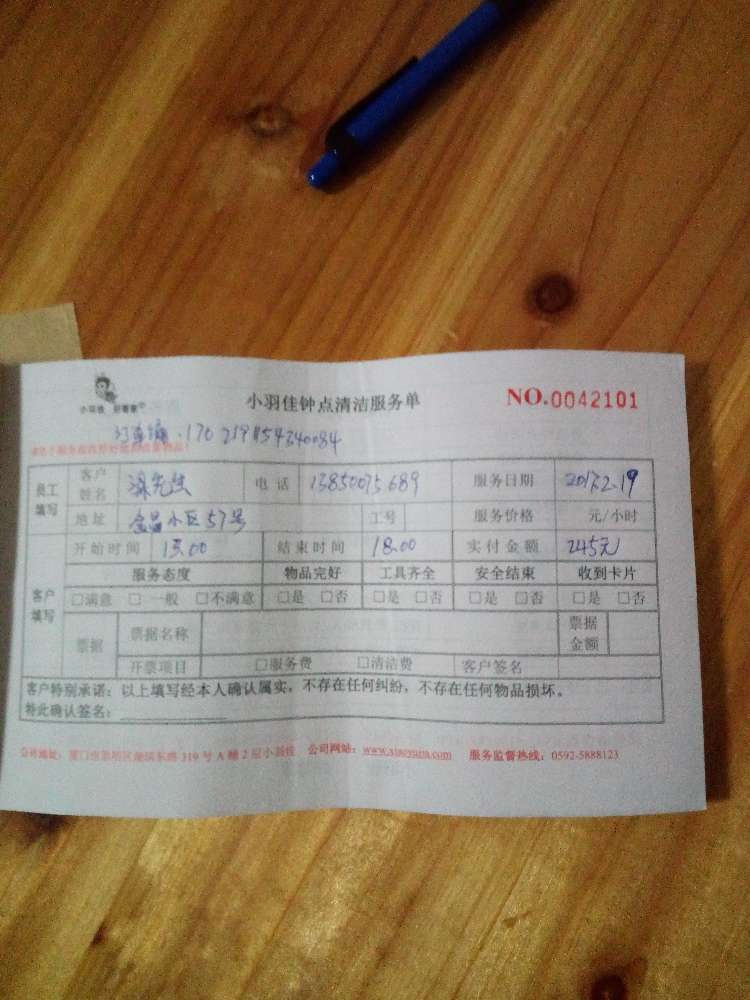 小羽佳 好管家
小羽佳钟点清洁服务单
NO.0042101
订单编:1702191154340084
员工填写
客户姓名 涂先生 电话 13850075689 服务日期 2017.2.19
地址 金昌小区57号 工号 服务价格 元/小时
客户填写
开始时间 15:00 结束时间 18:00 实付金额 245元
服务态度 物品完好 工具齐全 安全结束 收到卡片
□满意 □一般 □不满意 □是 □否 □是 □否 □是 □否 □是 □否
票据 票据名称 票据金额
开票项目 □服务费 □清洁费 客户签名
客户特别承诺:以上填写经本人确认属实,不存在任何纠纷,不存在任何物品损坏。
特此确认签名:
公司地址:厦门市思明区 319号A幢2层小羽佳 公司网站:www.xiaoyujia.com 服务监督热线:0592-5888123